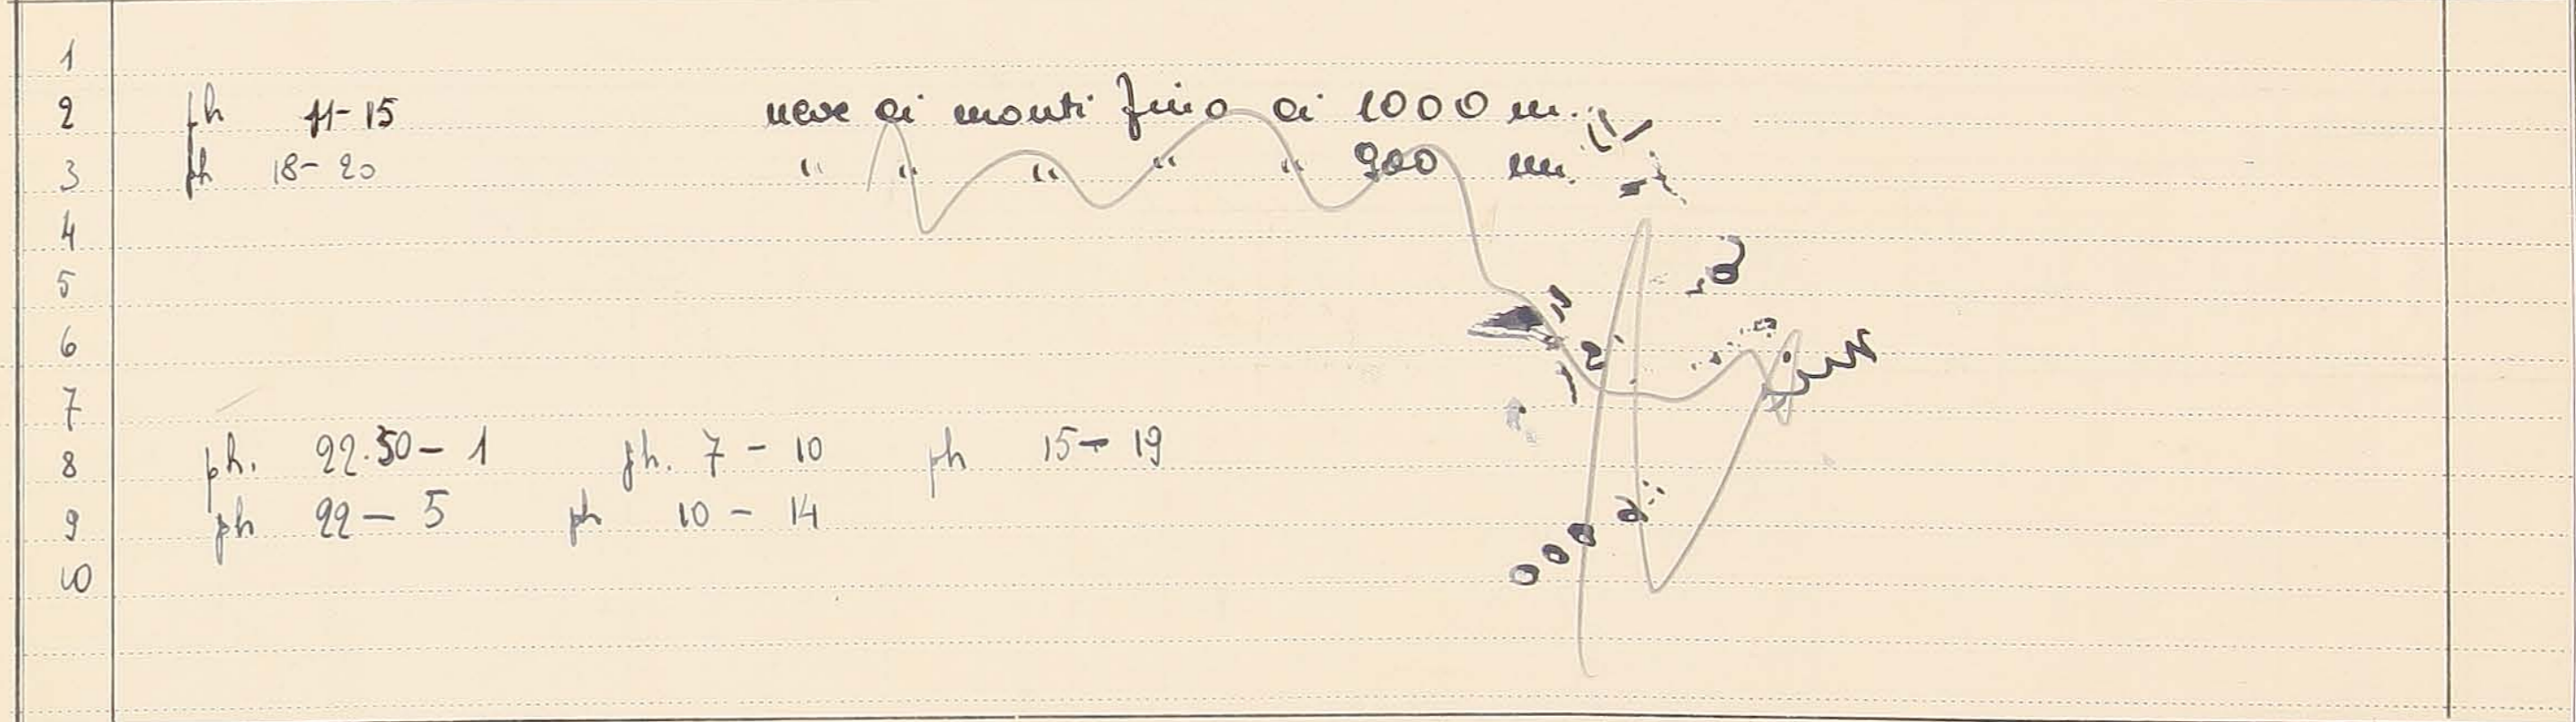 1
2 ph 11-15 neve ai monti fino ai 1000 m.
3 ph 18-20 " " " " " 900 m.
4
5
6
7
8 ph. 22.50-1 ph. 7-10 ph 15-19
9 ph 22-5 ph 10-14
10